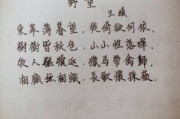 野望
王績
東皋薄暮望，徙倚欲何依。
樹樹皆秋色，山山惟落暉。
牧人驅犢返，獵馬帶禽歸。
相顧無相識，長歌懷采薇。